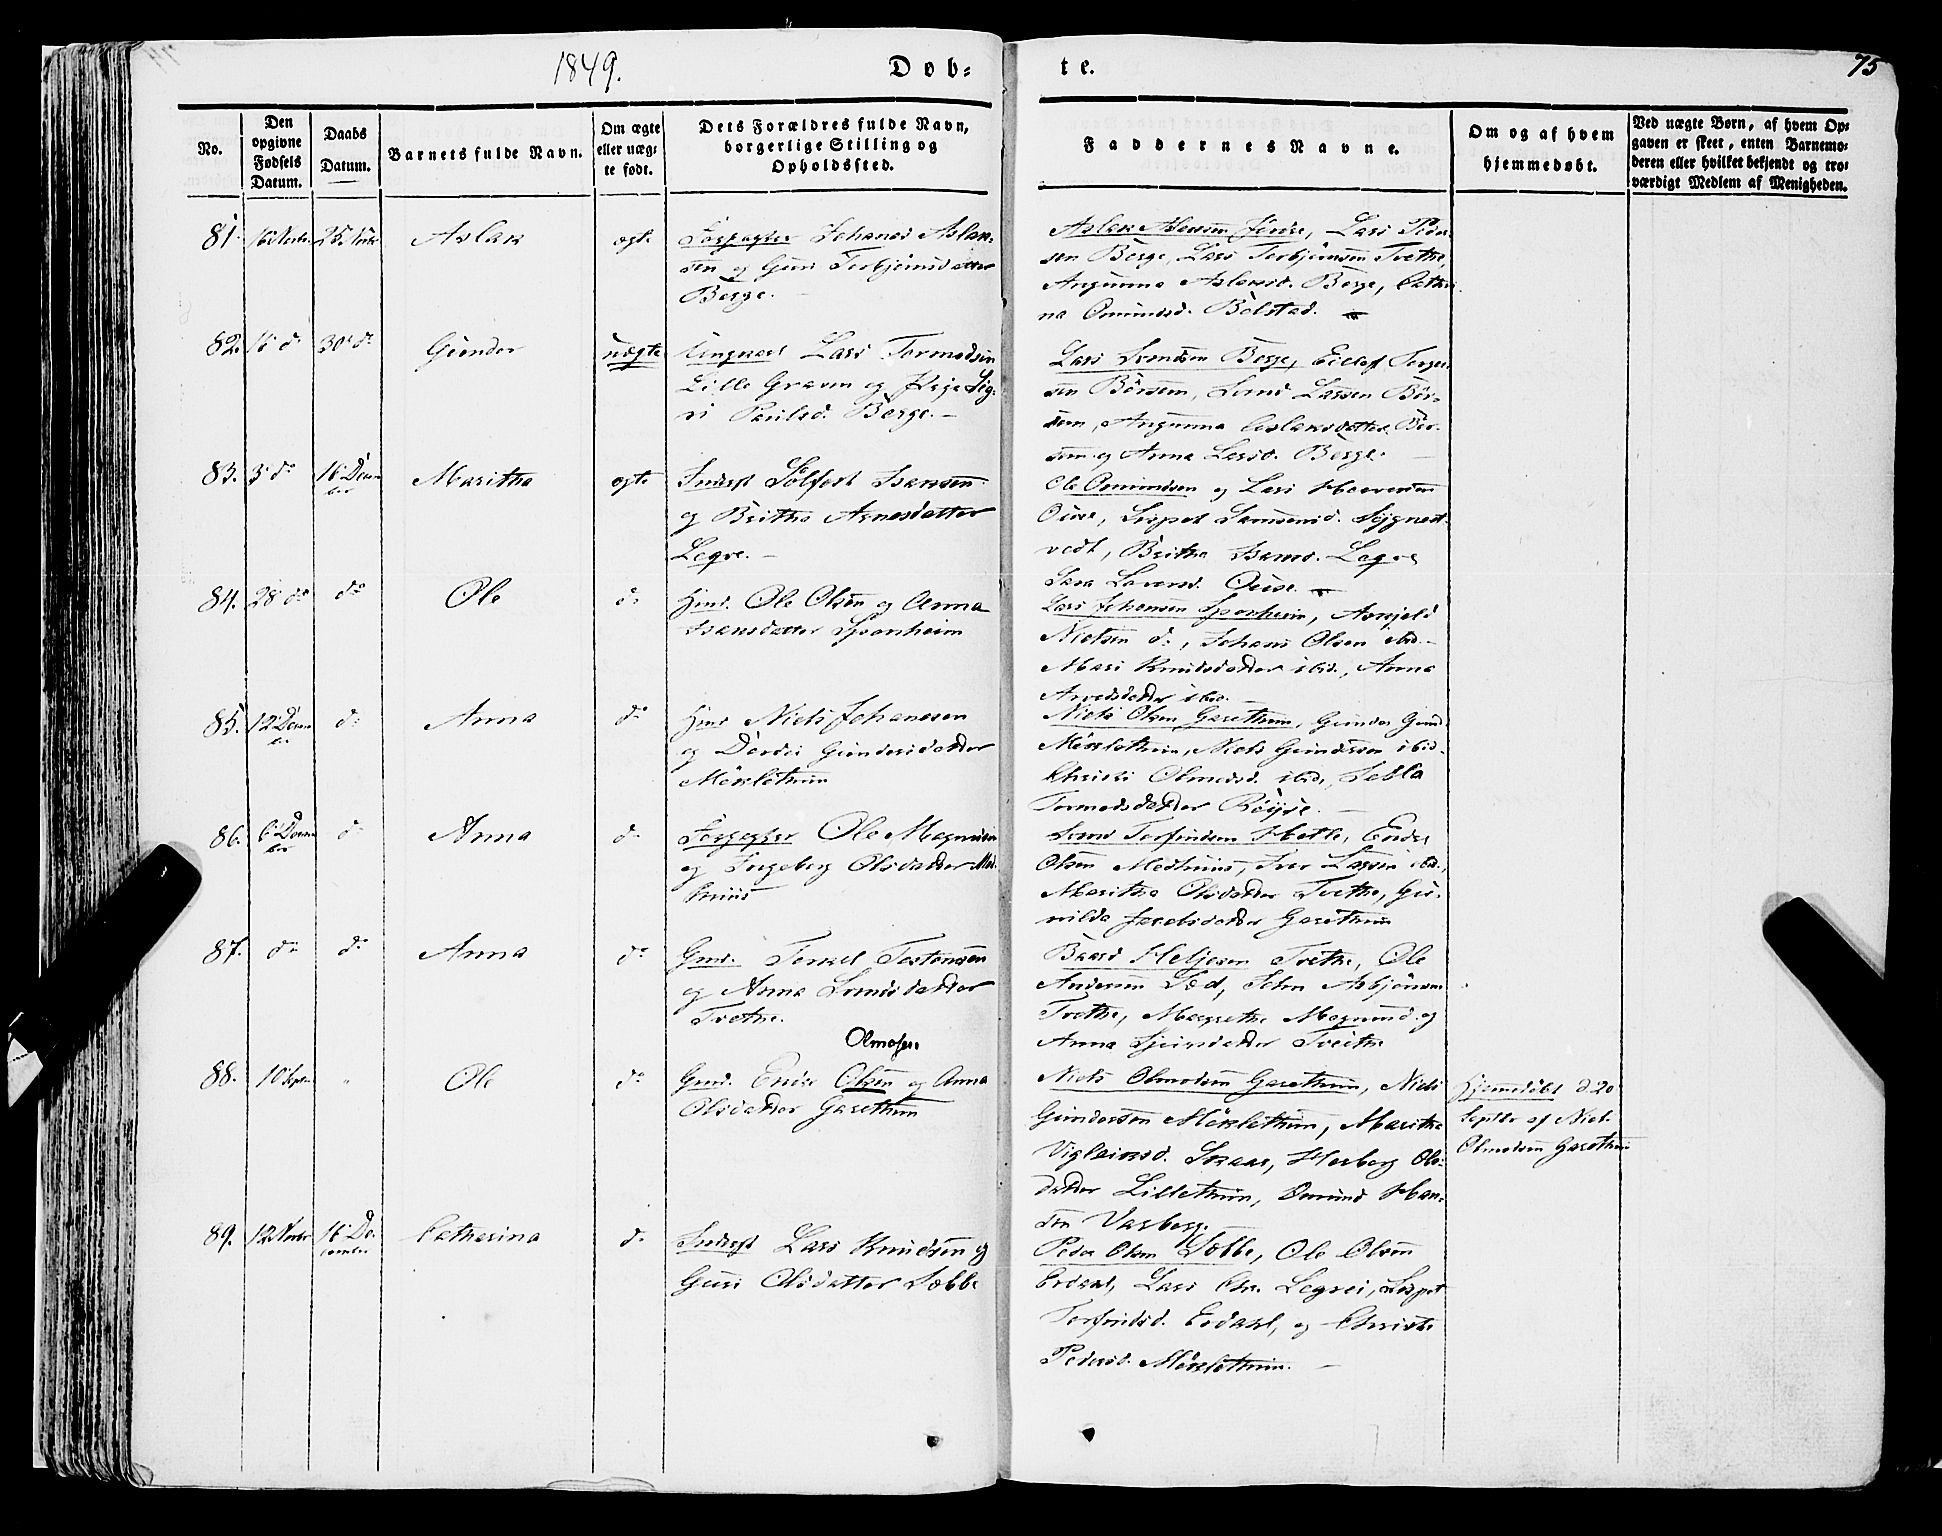 1849. Døb- te. 75
No.
Den opgivne Fødsels Datum.
Daabs Datum.
Barnets fulde Navn.
Om ægte eller uægte født.
Dets Forældres fulde Navn, borgerlige Stilling og Opholdssted.
Faddernes Navne.
Om og af hvem hjemmedøbt.
Ved uægte Børn, af hvem Opgaven er skeet, enten Barnemoderen eller hvilket bekjendt og troværdigt Medlem af Menigheden.
81. Aslak
Johanes Aslak-
sen og Guri Torbjörnsdatter
Berge.
Lars Peder-
sen Berge, Lars Torbjörnsen Tvethe,
Angunna Aslaksd. Berge, Cathri-
na Omundsd. Bolstad.
82. 16 do 30 do Gunder uægte
Ungkarl Lars Tormodsen
Lille Graven og Pige Sig-
ri Paulsd. Berge.
Lars Svendsen Berge, Eilef Torger-
sen Börsem, Svend Larsen Bör-
sem, Angunna Aslaksdatter Bör-
sem og Anna Larsd. Berge.
83. 3 do 16 Decem-
ber Maritha ægte
Inderst Solfest Isaksen
og Britha Arnesdatter
Legre.
Ole Omundsen og Lars Haavarsen
vedt, Britha Isaksd. Legre
84. 28 do do Ole do
Gmd. Ole Olsen og Anna
Isaksdatter Sponheim
Lars Johansen Sponheim,
Nielsen do, Johans Olsen ibd.
Mari Knudsdatter ibid., Anna
Arvedsdatter ibid.
85. 12 Decem-
ber do Anna do
Gmd Niels Johanesen
og Dordei Gundersdatter
Mörklethun
Niels Olsen Garethun, Gunder Gund-
Mörklethun, Niels Gundersen ibid.
Christi Olmodsd. ibid., Sebla
Tormodsdatter Röyse.
86. 6 Decem-
ber do Anna do
Forpagter Ole Magnusen
og Ingeborg Olsdatter Med-
huus
Svend Torfindsen Hetle, Endre
Olsen Medhuus, Iver Larsen ibd.,
Maritha Olsdatter Tvethe, Gu-
nilda Jacobsdatter Garethun
87. do do Anna do
Gmd. Torkel Torstensen
og Anna Svendsdatter
Tvethe.
Baard Heljesen Tvethe, Ole
Andersen Sæd, John Asbjörnsen
Tvethe, Margrethe Magnusd. og
Anna Sjursdatter Tveithe
88. 10 Septr. " Ole do
Olmodsen
Gmd. Endre Olsen og Anna
Olsdatter Garethun
Niels Olmodsen Garethun, Niels
Gundersen Mörklethun, Maritha
Vigleiksd. Skaar, Herborg Ols-
datter Lillethun, Omund Han-
sen Vasberg.
Hjemmedöbt d. 20
Septbr af Niels
Olmodsen Garethun
89. 12 Novbr 16 De-
cember Catharina do
Inderst Lars Knudsen og
Guri Olsdatter Sæbbe
Peder Olsen Sæbbe, Ole Olsen
Erdahl, Lars Chr. Legrei, Lispet
Torfindsd. Erdahl, og Christi
Pedersd. Mörklethun.